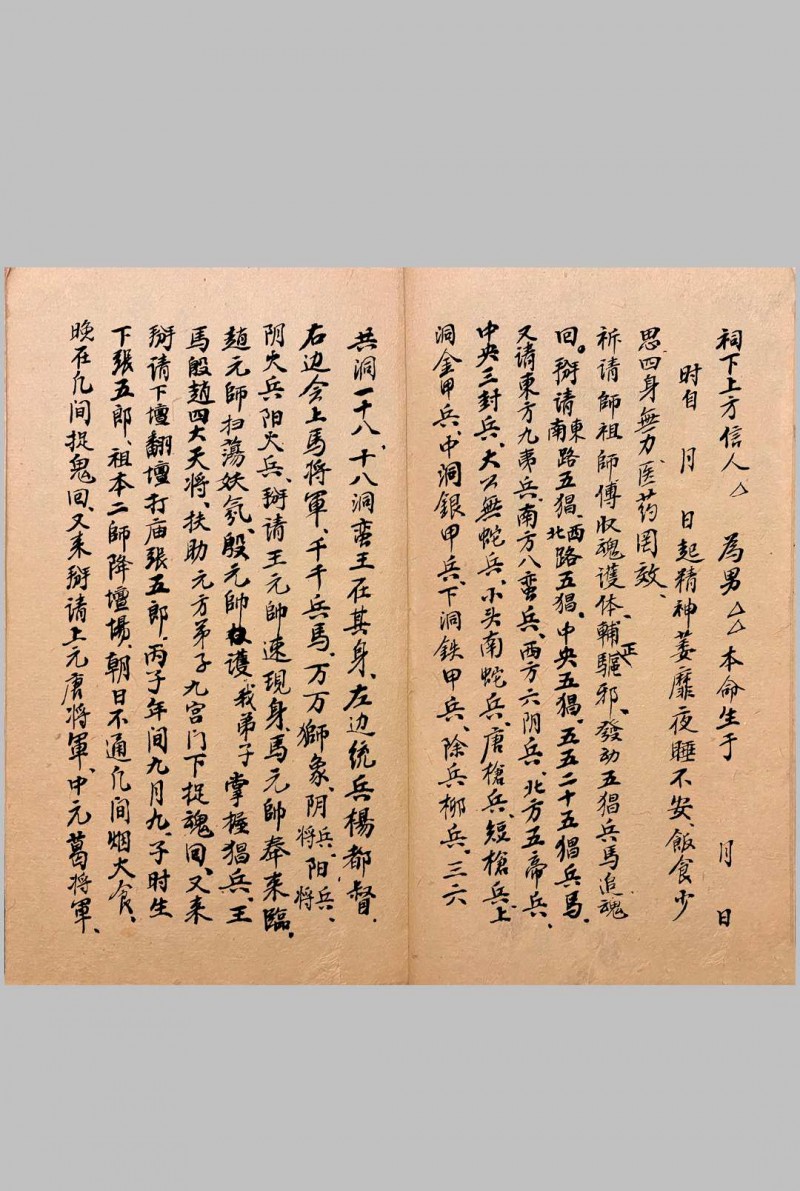 祠下上方信人△ 為男△△本命生于 月 日
时自 月 日起精神萎靡夜睡不安、飯食少
思四身無力医药罔效、
祈請師祖師傅收魂護体、輔正驅邪、發动五猖兵馬追魂
回。掰請東南路五猖、西北路五猖、中央五猖、五五二十五猖兵馬、
又請東方九夷兵、南方八蛮兵、西方六阴兵、北方五帝兵、
中央三封兵、大公無蛇兵、小头南蛇兵、唐槍兵、短槍兵、上
洞金甲兵、中洞銀甲兵、下洞鉄甲兵、除兵柳兵、三六
共洞一千八、十八洞蛮王在其身、左边统兵楊都督、
右边会上馬將軍、千千兵馬、万万獅象、阴兵將、阳兵將、
阴火兵阳火兵、掰请王元帥速現身、馬元帥奉来臨、
趙元帥扫蕩妖氛、殷元帥救護我弟子掌握猖兵、王
馬殷趙四大天將、扶助元方弟子九宫门下捉魂回、又来
掰请下壇翻壇打庙張五郎、丙子年间九月九、子时生
下張五郎、祖本二師降壇場、朝日不通凡间烟火食、
晚在凡间捉鬼回、又来掰请上元唐將軍、中元葛將軍、